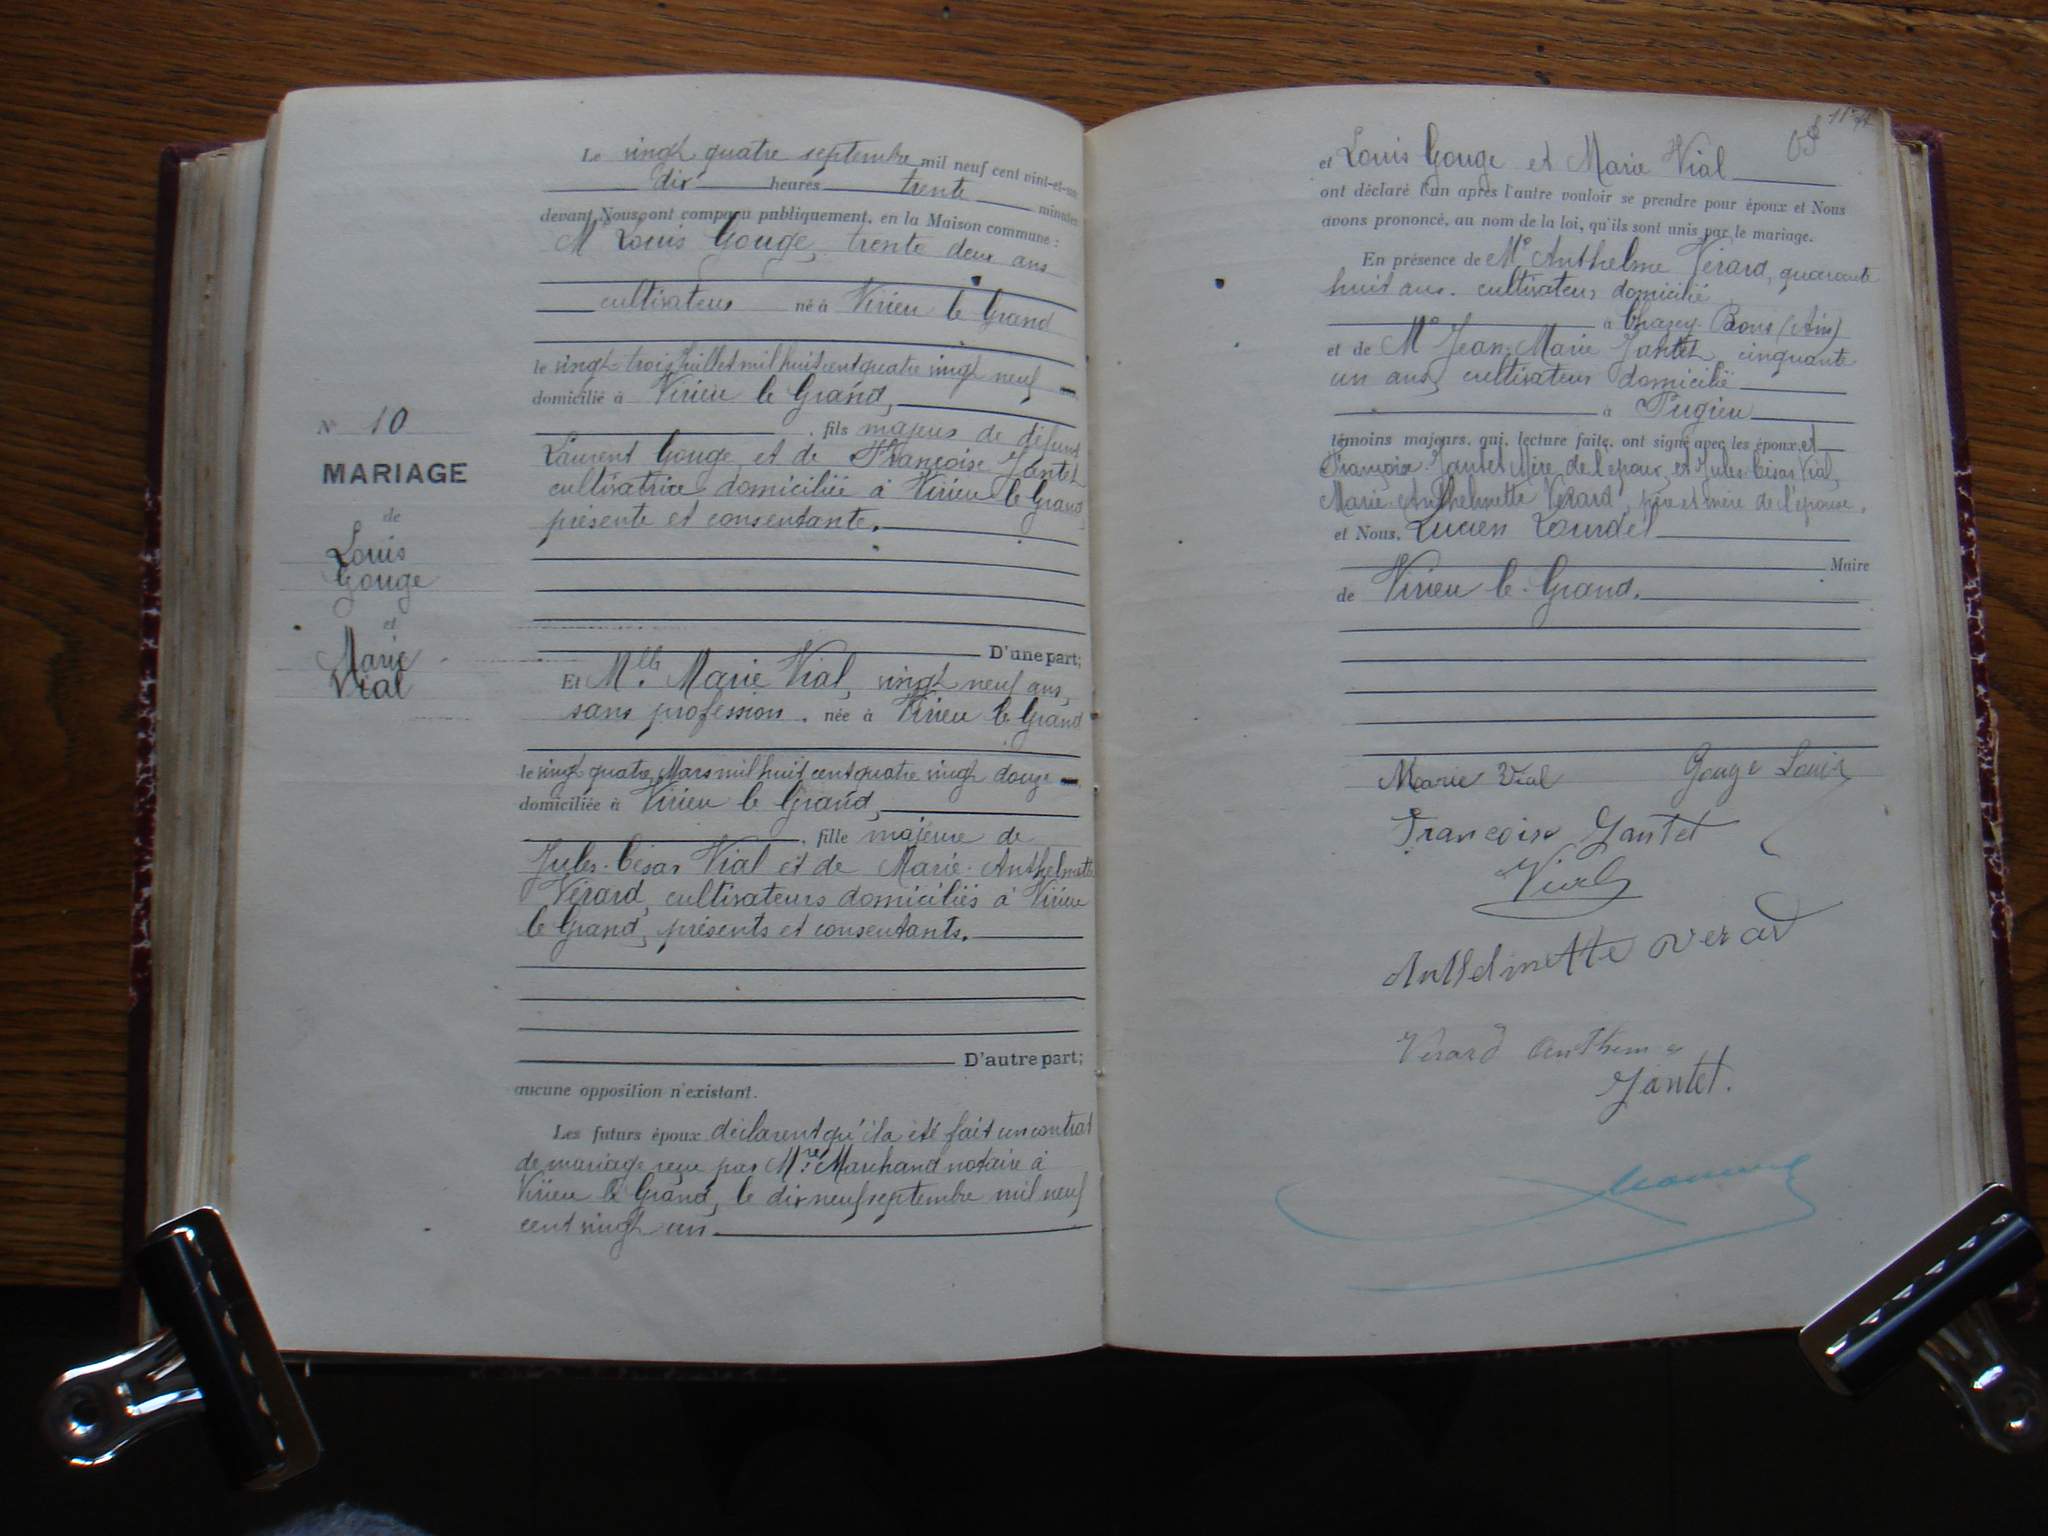 N° 10
MARIAGE
de
Louis
Gouge
et
Marie
Vial
Le vingt quatre septembre mil neuf cent vint-et-un
dix heures trente minutes
devant Nous, ont comparu publiquement, en la Maison commune :
Mr Louis Gouge, trente deux ans
cultivateur né à Virieu le Grand
le vingt trois juillet mil huit cent quatre vingt neuf
domicilié à Virieu le Grand,
, fils majeur de défunt
Laurent Gouge et de Françoise Jantet
cultivatrice domiciliée à Virieu le Grand,
présente et consentante.
D'une part;
Et Mlle Marie Vial, vingt neuf ans,
sans profession, née à Virieu le Grand
le vingt quatre Mars mil huit cent quatre vingt douze
domiciliée à Virieu le Grand,
, fille majeure de
Jules-César Vial et de Marie-Anthelmette
Vérard, cultivateurs domiciliés à Virieu
le Grand, présents et consentants.
D'autre part;
aucune opposition n'existant.
Les futurs époux déclarent qu'il a été fait un contrat
de mariage reçu par Mtre Marchand notaire à
Virieu le Grand, le dix neuf septembre mil neuf
cent vingt un.
et Louis Gouge et Marie Vial
ont déclaré l'un après l'autre vouloir se prendre pour époux et Nous
avons prononcé, au nom de la loi, qu'ils sont unis par le mariage.
En présence de Mr Anthelme Vérard, quarante
huit ans, cultivateur domicilié
à Chazey-Bons (Ain)
et de Mr Jean-Marie Jantet, cinquante
un ans, cultivateur domicilié
à Pugieu
témoins majeurs, qui, lecture faite, ont signé avec les époux, et
Françoise Jantet Mère de l'époux, et Jules-César Vial,
Marie-Anthelmette Vérard, père et mère de l'épouse,
et Nous, Lucien Tourdet
Maire
de Virieu-le-Grand.
Marie Vial Gouge Louis
Françoise Jantet
Vial
Anthelmette Verard
Vérard Anthem
Jantet.